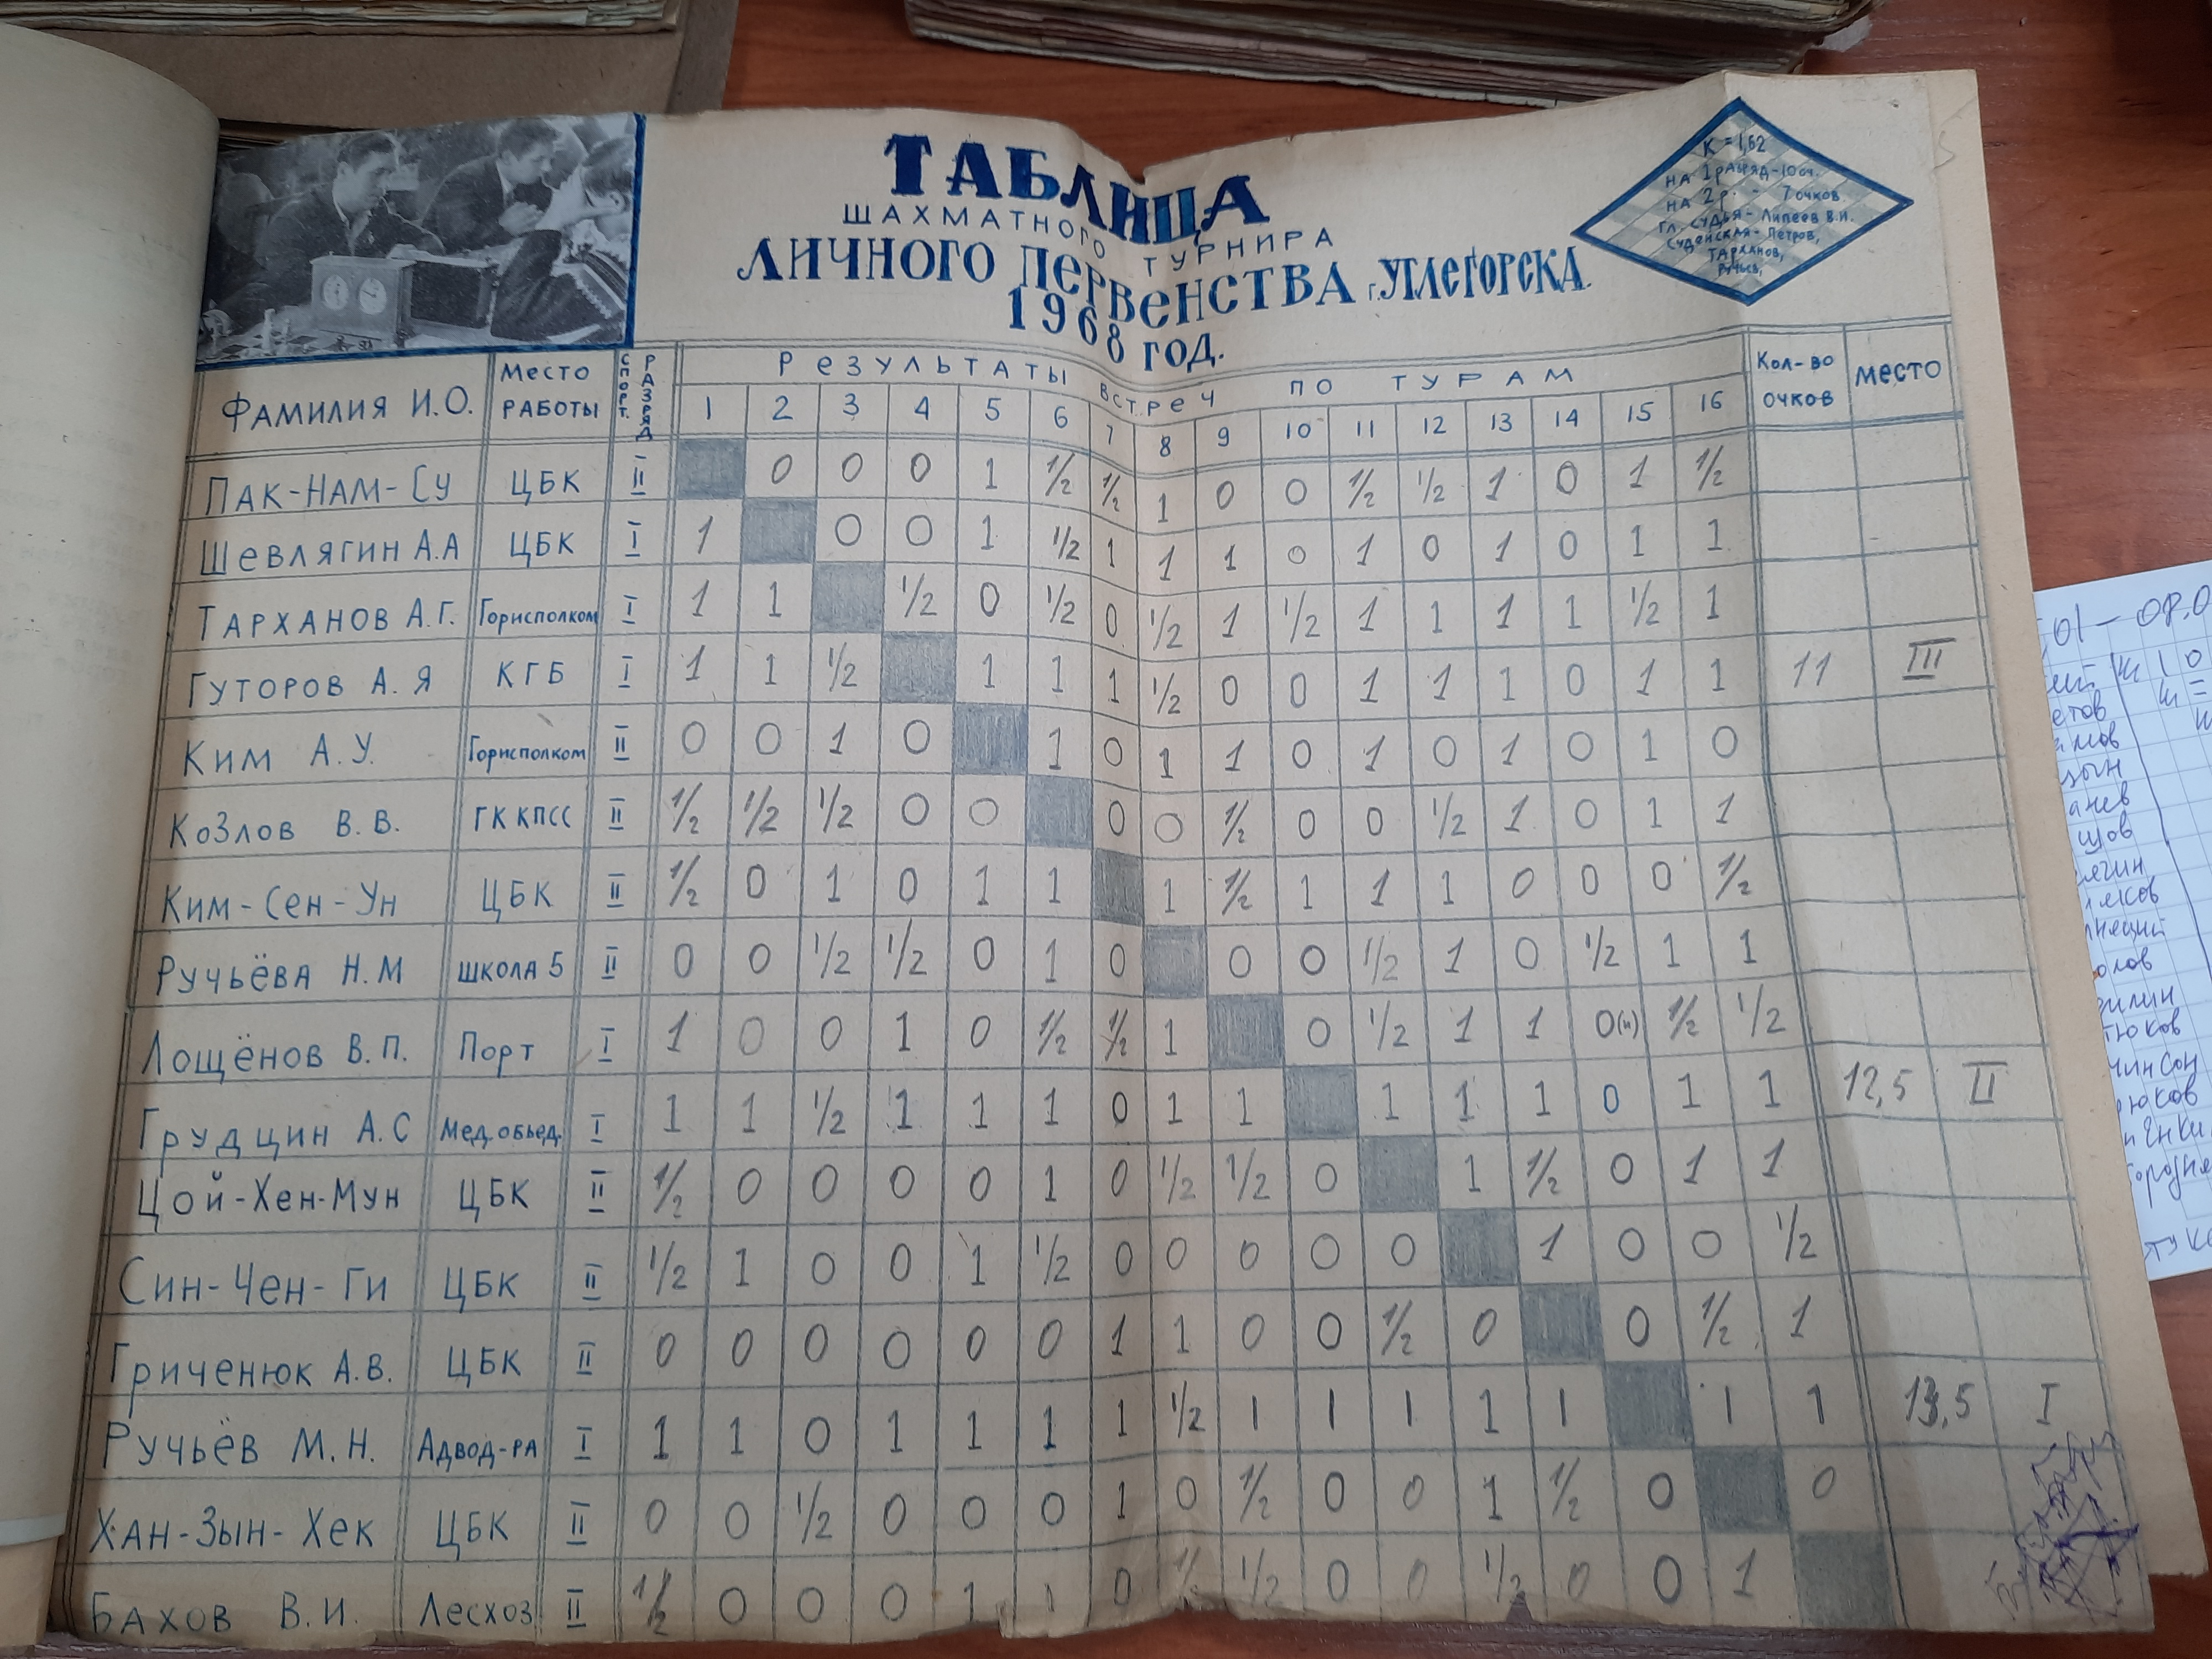 ТАБЛИЦА
ШАХМАТНОГО ТУРНИРА
ЛИЧНОГО ПЕРВЕНСТВА г. УГЛЕГОРСКА.
1968 ГОД.
К = 1,62
НА 1 РАЗРЯД - 10 оч.
НА 2 р. - 7 очков.
Гл. СУДЬЯ - Липеев В.И.
Судейская - Петров,
Тарханов,
Ручьев,
ФАМИЛИЯ И.О. МЕСТО РАБОТЫ СПОРТ. РАЗРЯД РЕЗУЛЬТАТЫ ВСТРЕЧ ПО ТУРАМ КОЛ-ВО ОЧКОВ МЕСТО
1 2 3 4 5 6 7 8 9 10 11 12 13 14 15 16
ПАК-НАМ-СУ ЦБК II 0 0 0 1 1/2 1/2 1 0 0 1/2 1/2 1 0 1 1/2
ШЕВЛЯГИН А.А ЦБК I 1 0 0 1 1/2 1 1 1 0 1 0 1 0 1 1
ТАРХАНОВ А.Г. Горисполком I 1 1 1/2 0 1/2 0 1/2 1 1/2 1 1 1 1 1/2 1
ГУТОРОВ А.Я КГБ I 1 1 1/2 1 1 1 1/2 0 0 1 1 1 0 1 1 11 III
КИМ А.У. Горисполком II 0 0 1 0 1 0 1 1 0 1 0 1 0 1 0
КОЗЛОВ В.В. ГК КПСС II 1/2 1/2 1/2 0 0 0 0 1/2 0 0 1/2 1 0 1 1
КИМ-СЕН-УН ЦБК II 1/2 0 1 0 1 1 1 1/2 1 1 1 0 0 0 1/2
РУЧЬЁВА Н.М ШКОЛА 5 II 0 0 1/2 1/2 0 1 0 0 0 1/2 1 0 1/2 1 1
ЛОЩЁНОВ В.П. Порт I 1 0 0 1 0 1/2 1/2 1 0 1/2 1 1 0(н) 1/2 1/2
ГРУДЦИН А.С Мед.обьед. I 1 1 1/2 1 1 1 0 1 1 1 1 1 0 1 1 12,5 II
ЦОЙ-ХЕН-МУН ЦБК II 1/2 0 0 0 0 1 0 1/2 1/2 0 1 1/2 0 1 1
СИН-ЧЕН-ГИ ЦБК II 1/2 1 0 0 1 1/2 0 0 0 0 0 1 0 0 1/2
ГРИЧЕНЮК А.В. ЦБК II 0 0 0 0 0 0 1 1 0 0 1/2 0 0 1/2 1
РУЧЬЁВ М.Н. АДВОД-РА I 1 1 0 1 1 1 1 1/2 1 1 1 1 1 1 1 13,5 I
ХАН-ЗЫН-ХЕК ЦБК II 0 0 1/2 0 0 0 1 0 1/2 0 0 1 1/2 0 0
БАХОВ В.И. ЛЕСХОЗ II 1/2 0 0 0 1 1 0 1/2 1/2 0 0 1/2 0 0 1